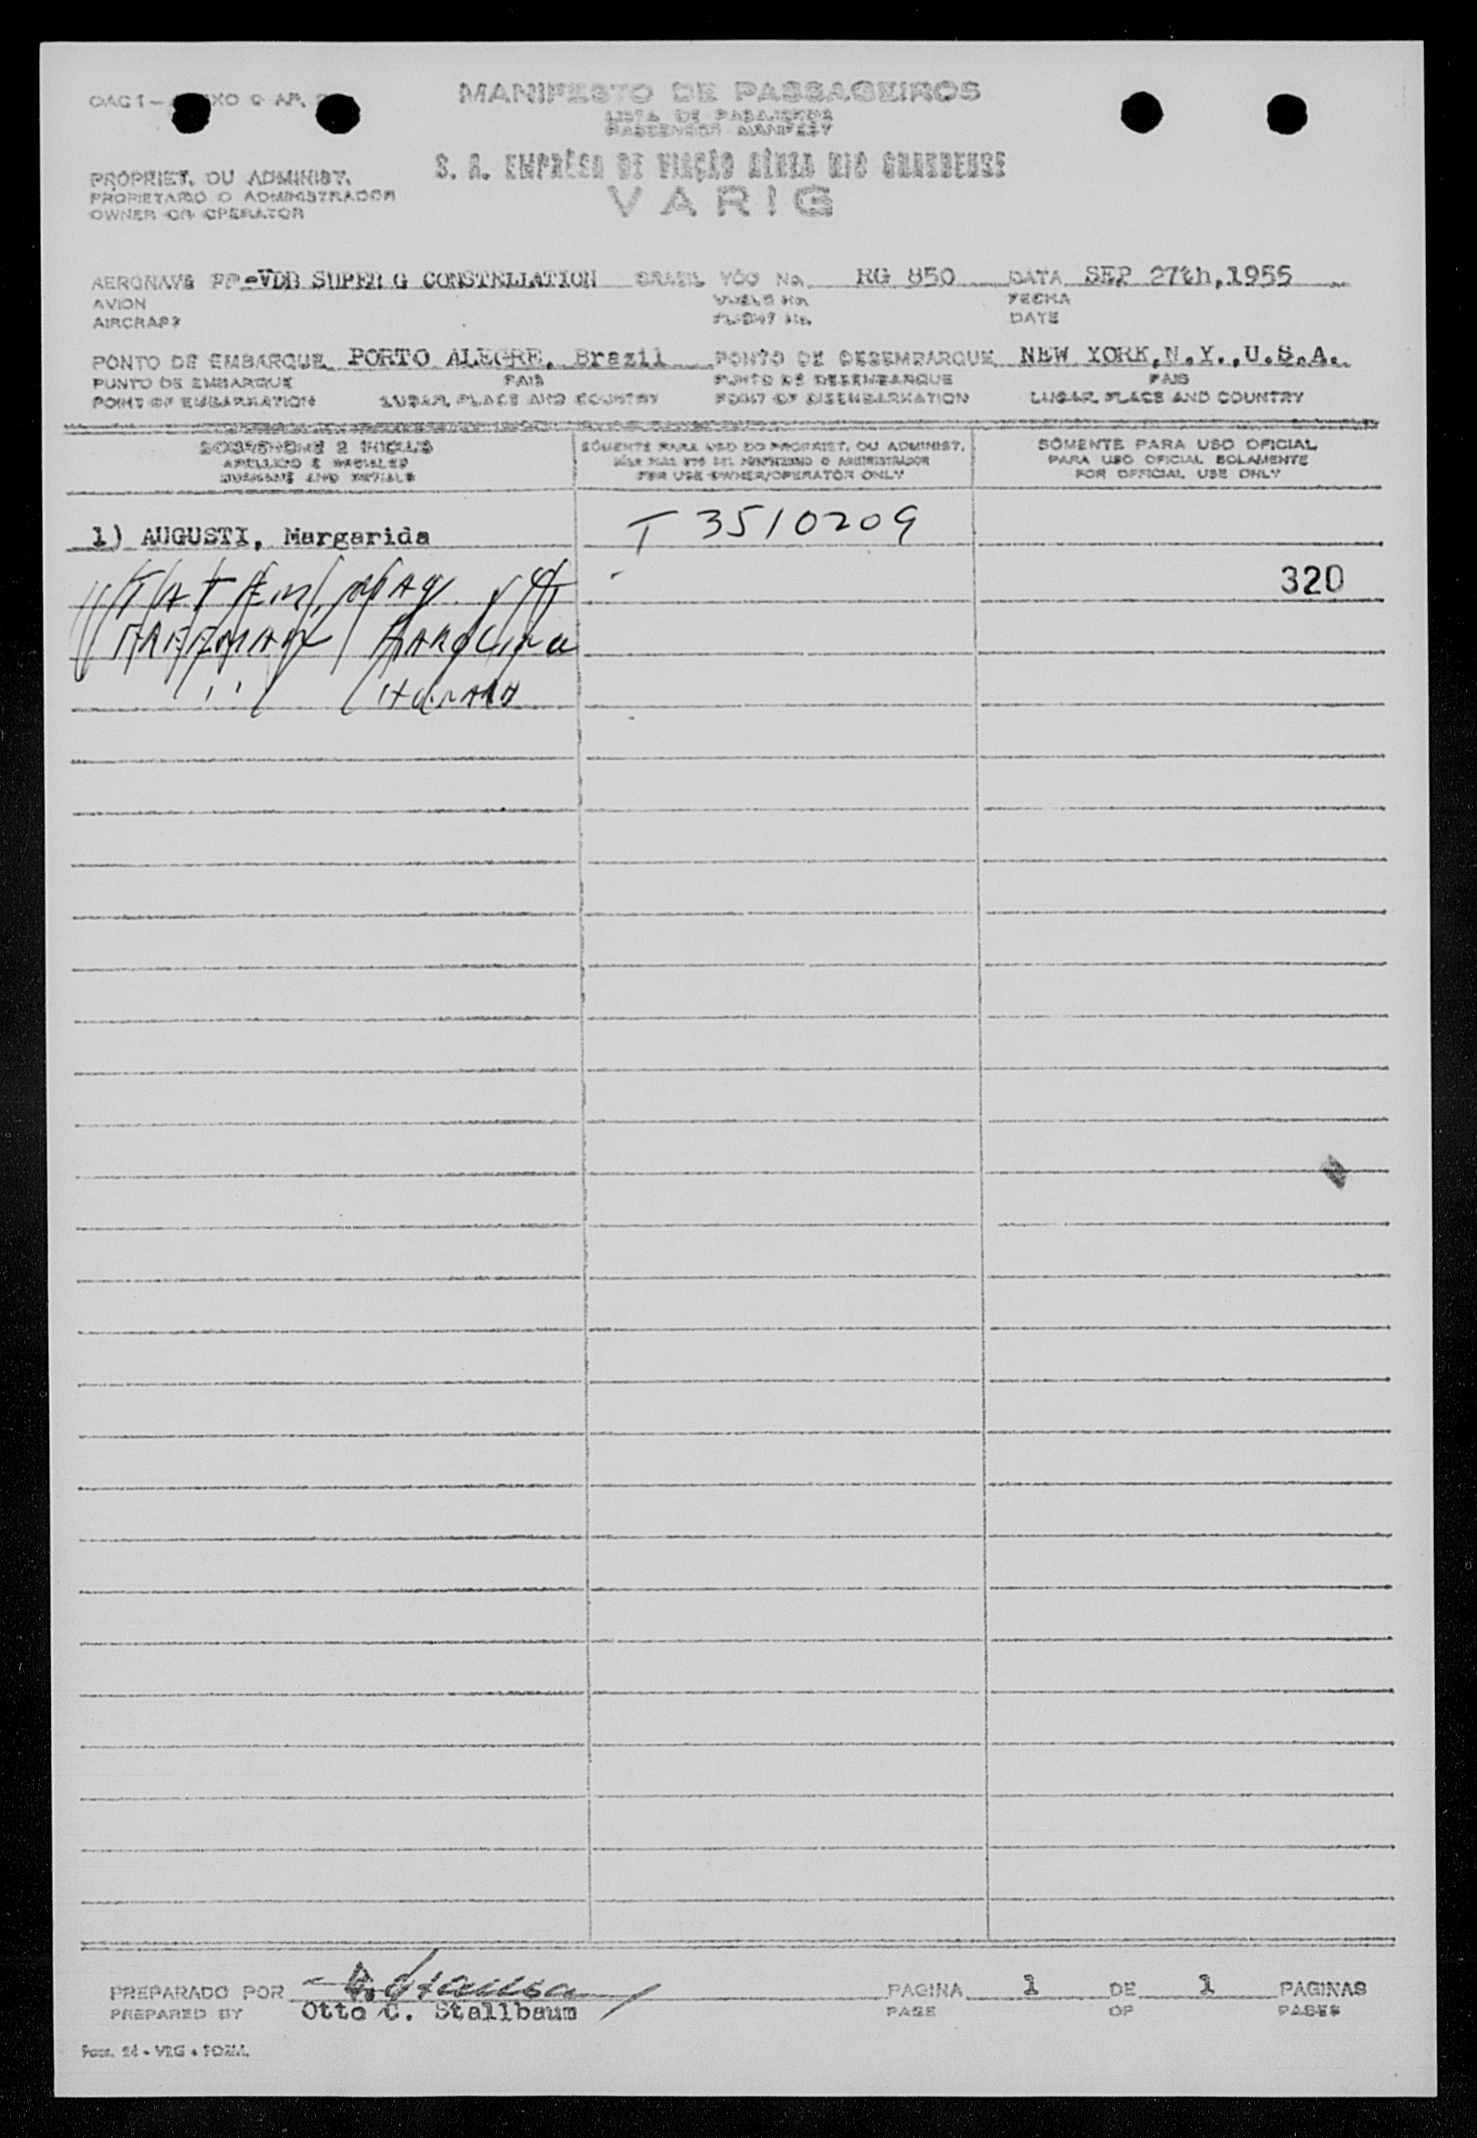 MANIFESTO DE PASSAGEIROS
LISTA DE PASAJEROS
PASSENGER MANIFEST
S. A. EMPRÊSA DE VIAÇÃO AÉREA RIO GRANDENSE
VARIG
PROPRIET. OU ADMINIST.
PROPIETARIO O ADMINISTRADOR
OWNER OR OPERATOR
AERONAVE PP-VDB SUPER G CONSTELLATION BRASIL VÔO No. RG 850 DATA SEP 27th,1955
AVION VUELO No. FECHA
AIRCRAFT FLIGHT No. DATE
PONTO DE EMBARQUE PORTO ALEGRE, Brazil PONTO DE DESEMBARQUE NEW YORK,N.Y.,U.S.A.
PUNTO DE EMBARQUE PAIS PUNTO DE DESEMBARQUE PAIS
POINT OF EMBARKATION LUGAR, PLACE AND COUNTRY POINT OF DISEMBARKATION LUGAR, PLACE AND COUNTRY
SOBRENOME E INICIAIS SÓMENTE PARA USO DO PROPRIET. OU ADMINIST. SÓMENTE PARA USO OFICIAL
APELLIDO E INICIALES PARA USO OFICIAL SOLAMENTE
SURNAME AND INITIALS FOR USE OWNER/OPERATOR ONLY FOR OFFICIAL USE ONLY
1) AUGUSTI, Margarida T 3510209
320
PREPARADO POR PAGINA 1 DE 1 PAGINAS
PREPARED BY Otto C. Stallbaum PAGE OF PAGES